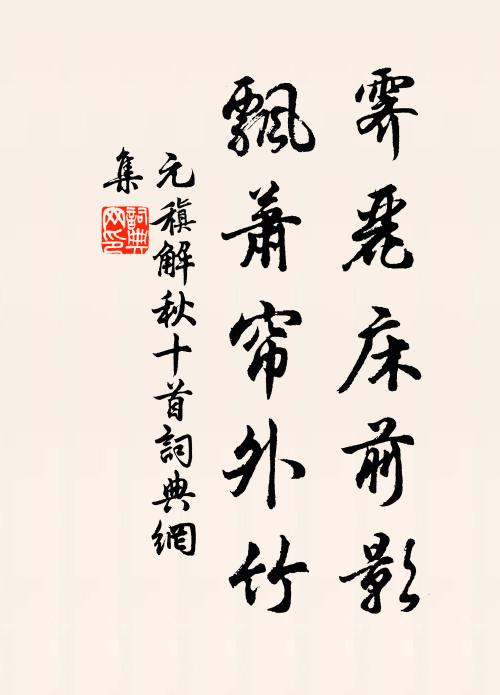 霁麗床前影
飄蕭帘外竹
元稹解秋十首詞典網
集
詞典网印